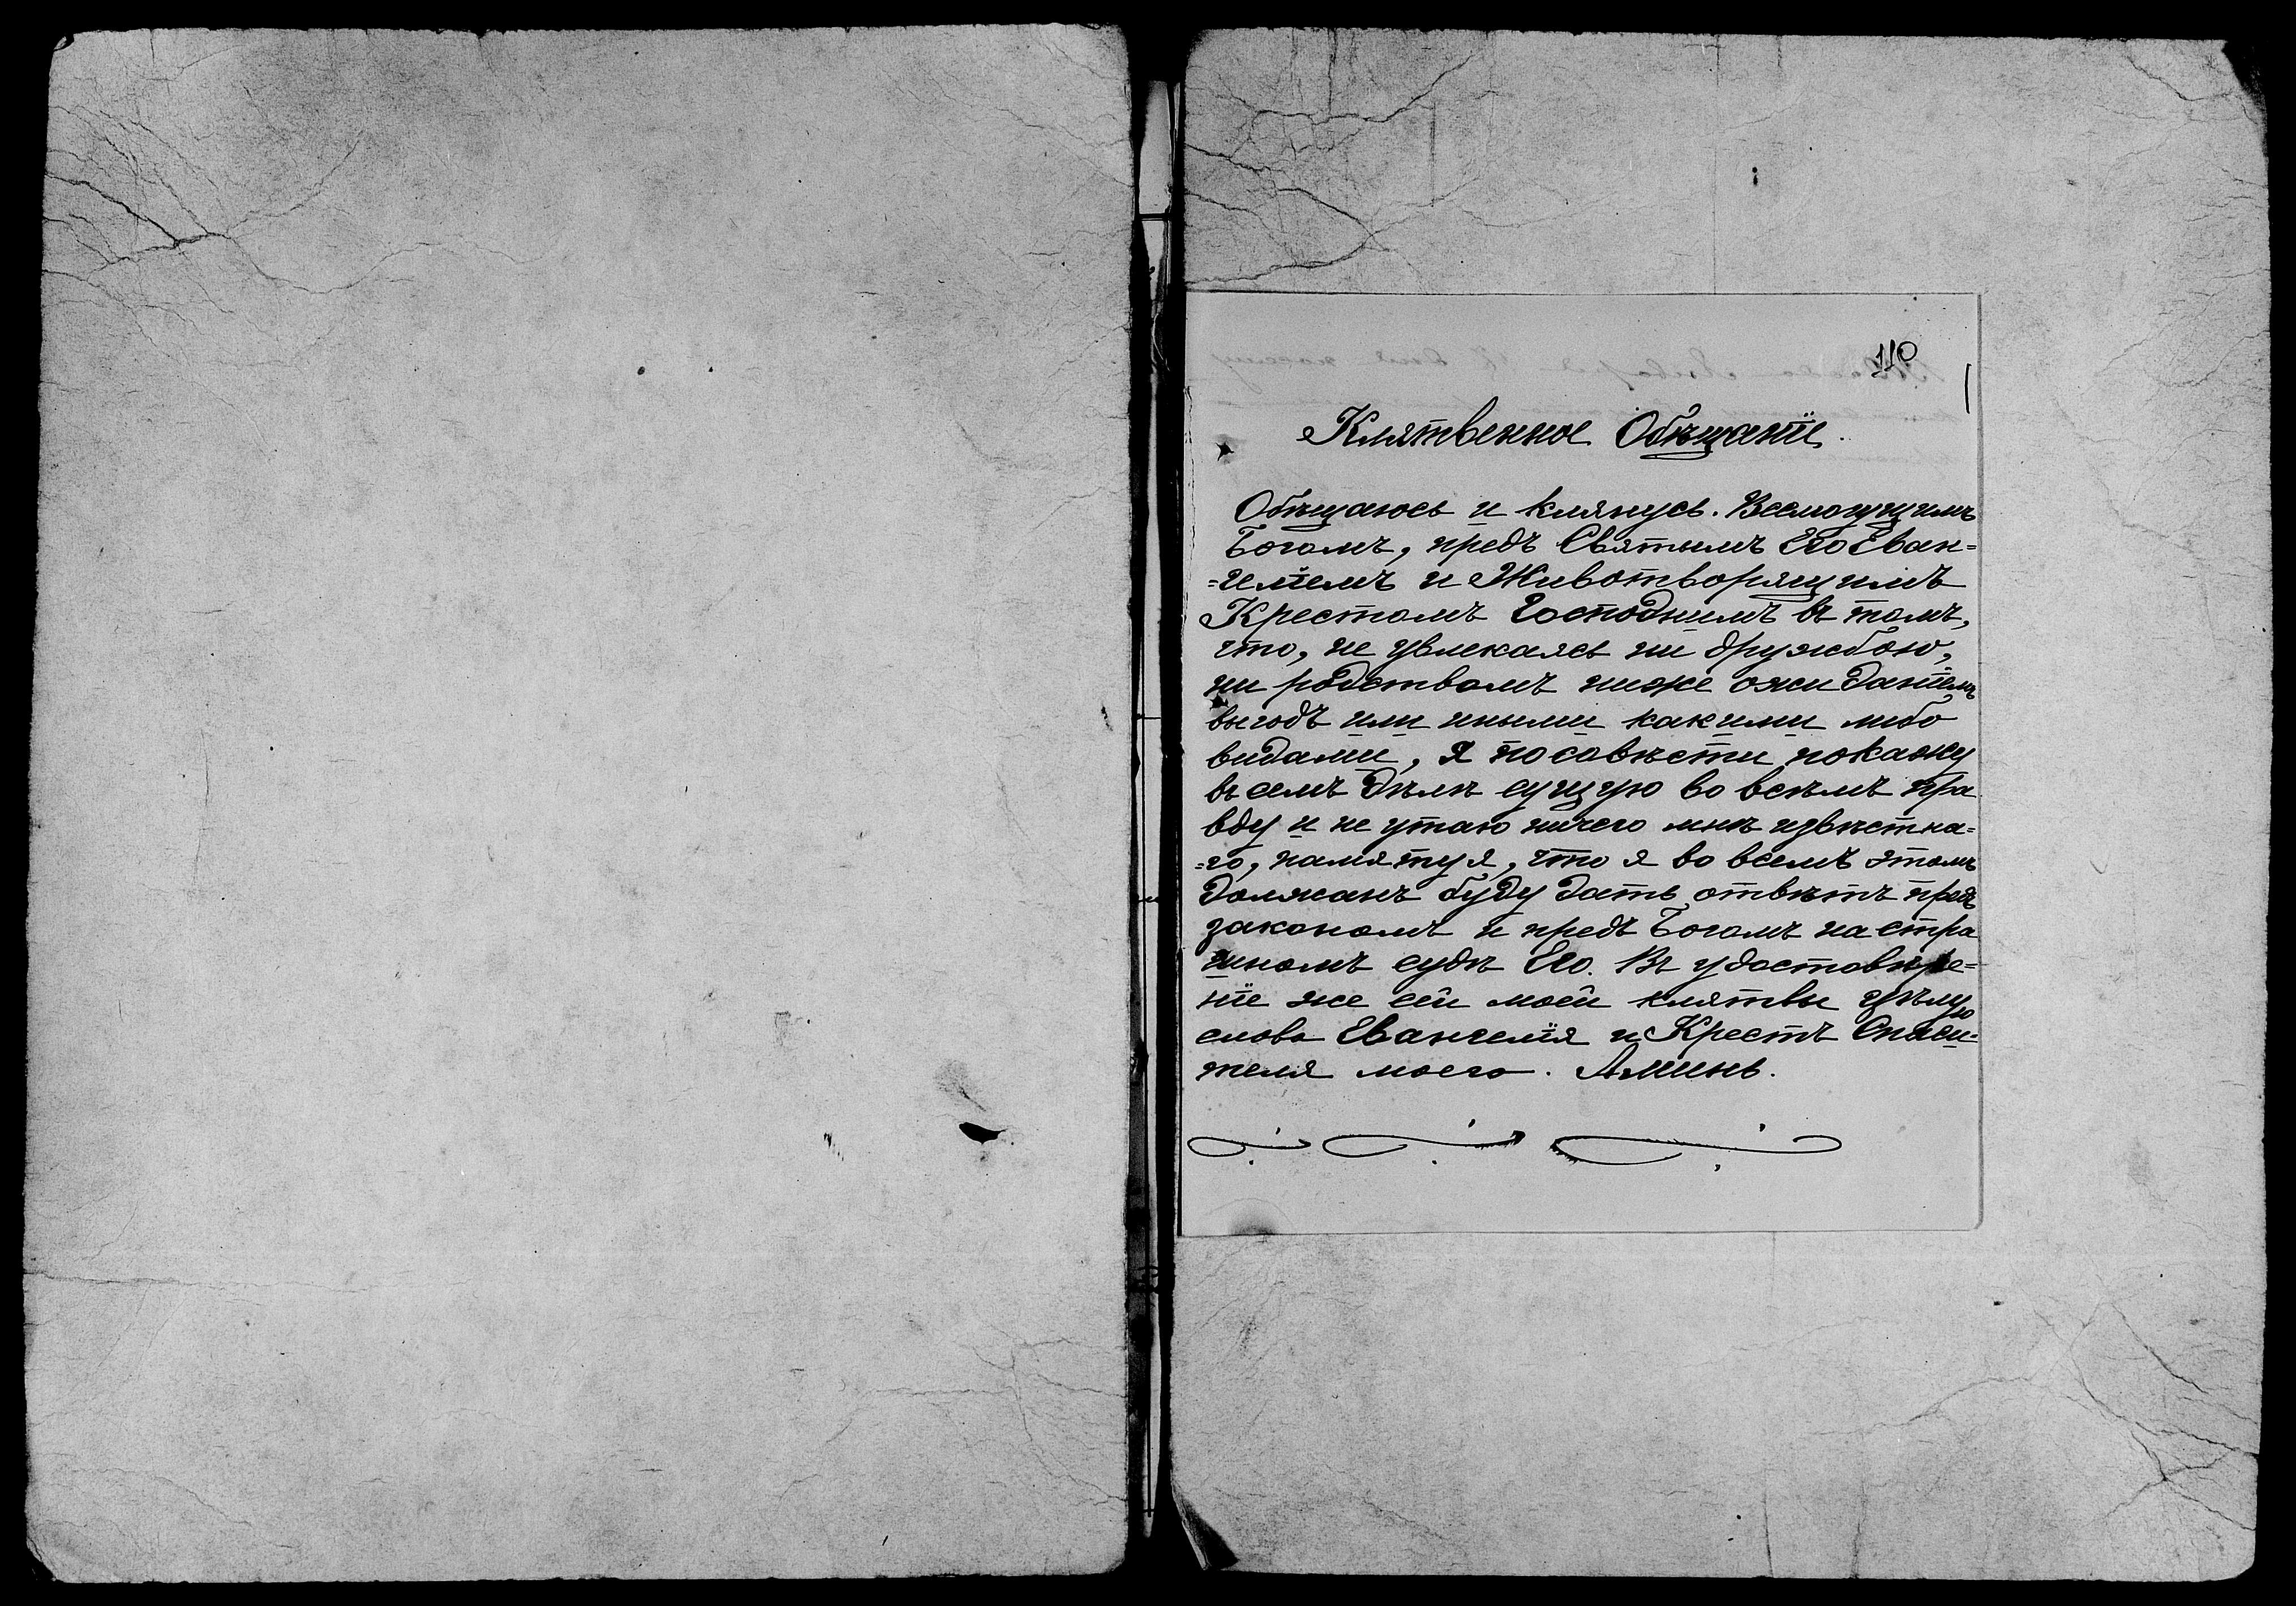 110
Клятвенное Обѣщанiе.
Обѣщаюсь и клянусь. Всемогущимъ
Богомъ, предъ Святымъ Его Еван=
=гелiемъ и Животворящимъ
Крестомъ Господнимъ въ томъ,
что, не увлекаясь ни дружбою,
ни родствомъ ниже ожиданiемъ
выгодъ или иными какими либо
видами, я по совѣсти покажу
въ семъ дѣлѣ сущую во всѣмъ пра
вду и не утаю ничего мнѣ извѣстна=
=го, памятуя, что я во всемъ этомъ
долженъ буду дать отвѣтъ предъ
закономъ и предъ Богомъ на стра
шномъ судѣ Его. Въ удостовѣре=
нiе же сей моей клятвы цѣлую
слова Евангелiя и Крестъ Спаси=
теля моего. Аминь.